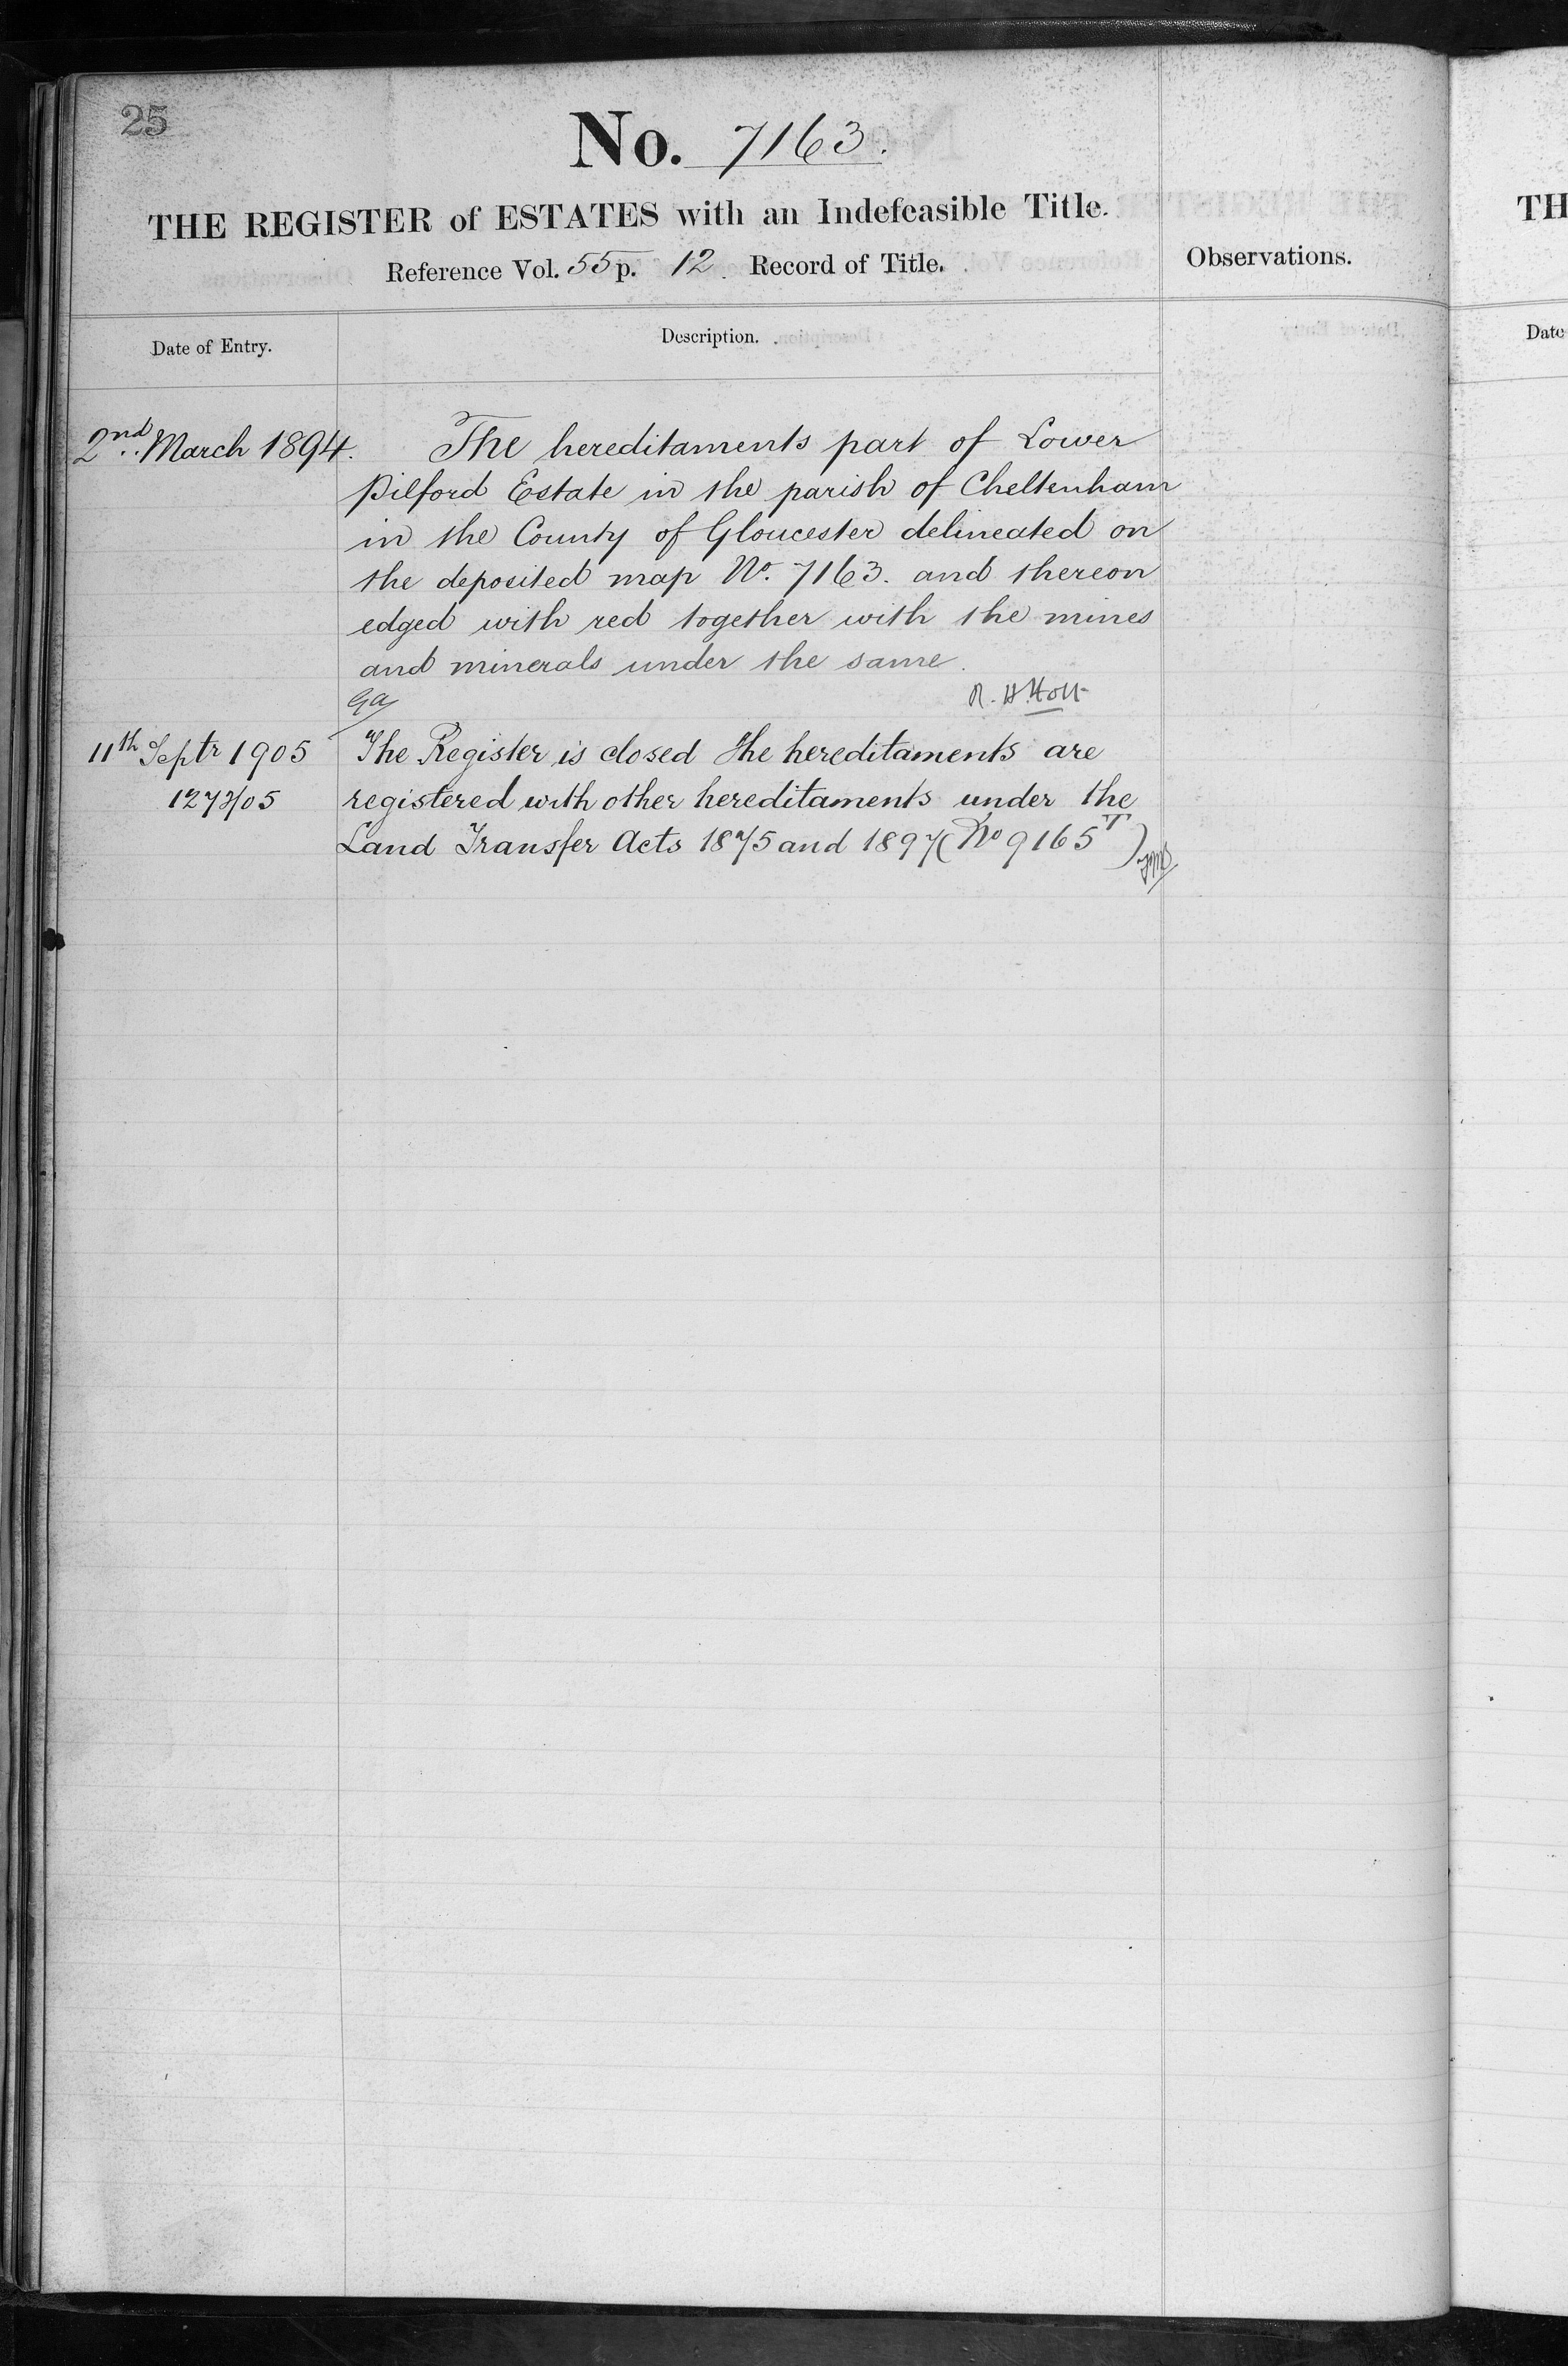 25
No. 7163.
THE REGISTER of ESTATES with an Indefeasible Title.
Reference Vol. 55 p. 12 Record of Title.
Observations.
Date of Entry.
Description.
2nd March 1894.
The hereditaments part of Lower
Pilford Estate in the parish of Cheltenham
in the County of Gloucester delineated on
the deposited map No. 7163. and thereon
edged with red together with the mines
and minerals under the same.
R. H. Holt
11th Septr 1905
The Register is closed the hereditaments are
registered with other hereditaments under the
Land Transfer Acts 1875 and 1897 (No 9165T)
TH
Date